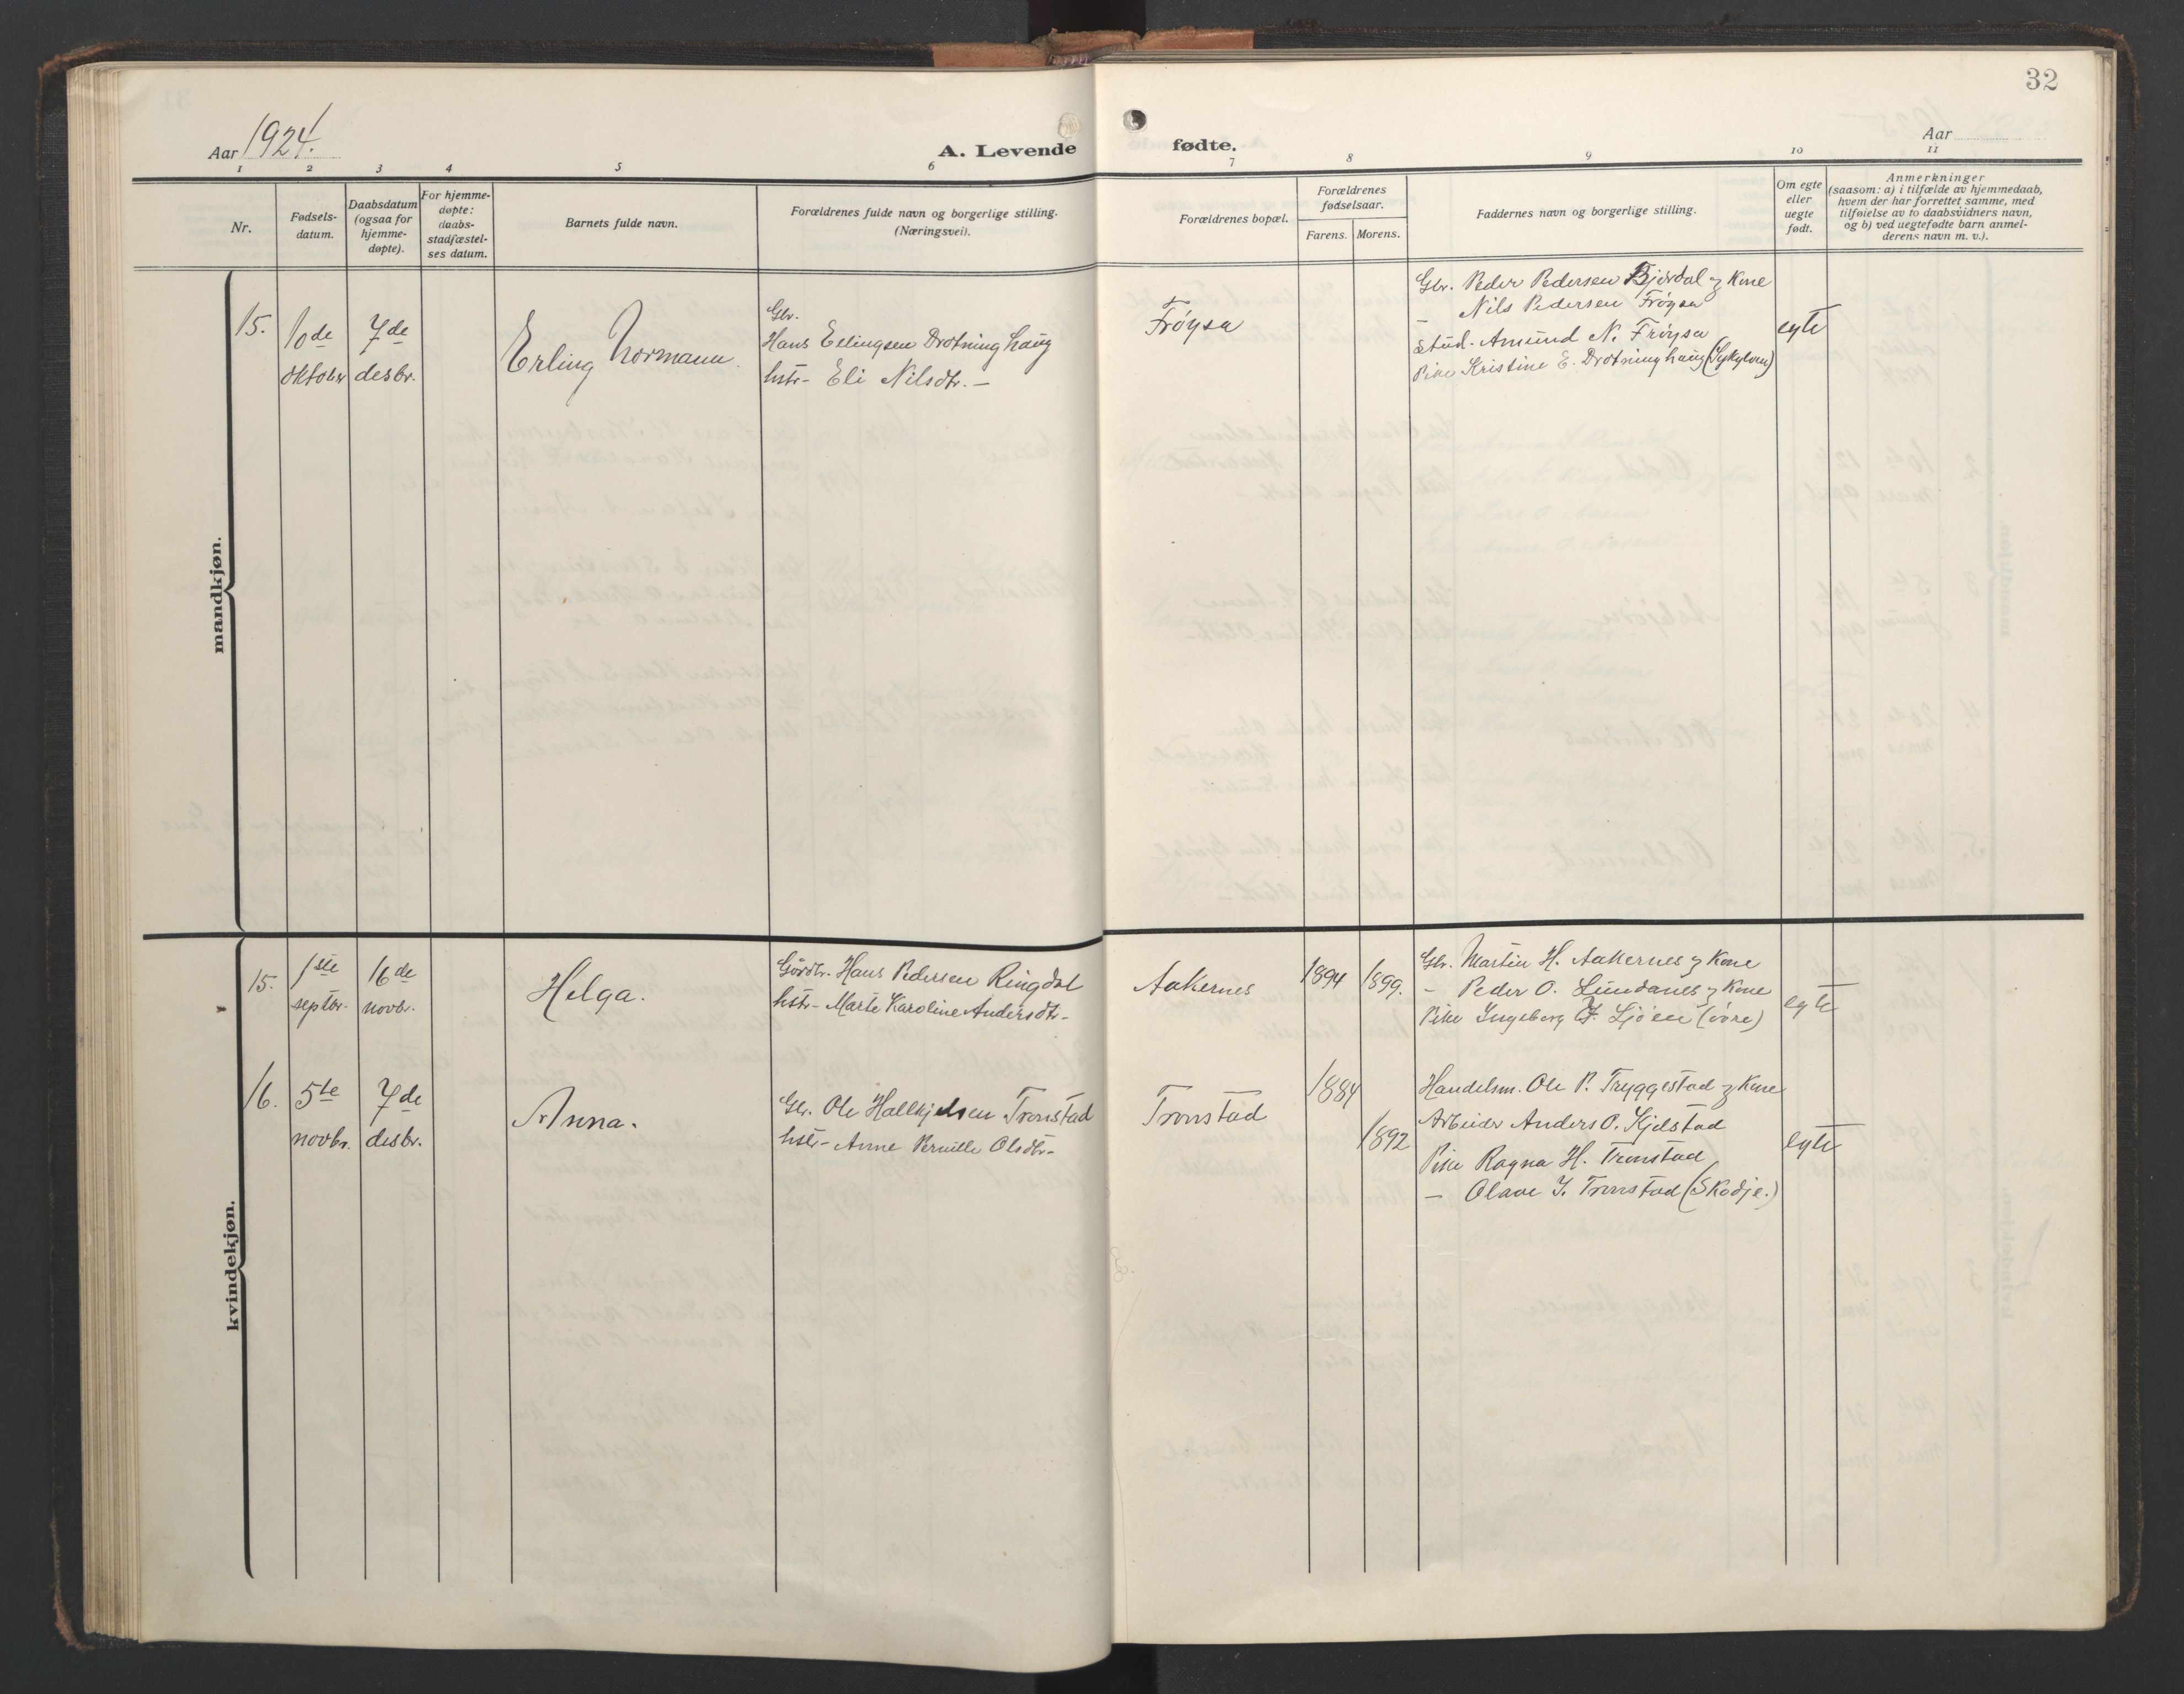 32
Aar 1924.
A. Levende
fødte.
Aar
1 2 3 4 5 6 7 8 9 10 11
Nr.
Fødsels-
datum.
Daabsdatum
(ogsaa for
hjemme-
døpte).
For hjemme-
døpte:
daabs-
stadfæstel-
ses datum.
Barnets fulde navn.
Forældrenes fulde navn og borgerlige stilling.
(Næringsvei).
Forældrenes bopæl.
Forældrenes
fødselsaar.
Farens. Morens.
Faddernes navn og borgerlige stilling.
Om egte
eller
uegte
født.
Anmerkninger
(saasom: a) i tilfælde av hjemmedaab,
hvem der har forrettet samme, med
tilføielse av to daabsvidners navn,
og b) ved uegtefødte barn anmel-
derens navn m. v.).
mandkjøn.
15.
10de
oktober
7de
desbr.
Erling Normann.
Gbr.
Hans Ellingsen Drotninghaug
hstr- Eli Nilsdtr. –
Frøysa
Gbr. Peder Pedersen Bjørdal og Kone
– Nils Pedersen Frøysa
Stud. Amund N. Frøysa
Pike Kristine E. Drotninghaug (Sykylven)
egte
kvindekjøn.
15.
1ste
septbr.
16de
novbr.
Helga.
Gårdbr. Hans Pedersen Ringdal
hstr- Marte Karoline Andersdtr-
Aakernes
1894
1899.
Gbr. Martin H. Aakernes og Kone
– Peder O. Lundanes og Kone
Pike Ingeborg Sjøen (øvre)
egte
16.
5te
novbr.
7de
desbr.
Anna.
Gbr. Ole Hallkjelsen Tronstad
hstr- Anne Pernille Olsdtr-
Tronstad
1884
1892
Handelsm. Ole P. Tryggestad og Kone
Arbeider Anders O. Kjelstad
Pike Ragna H. Tronstad
– Olave I. Tronstad (Skodje.)
egte